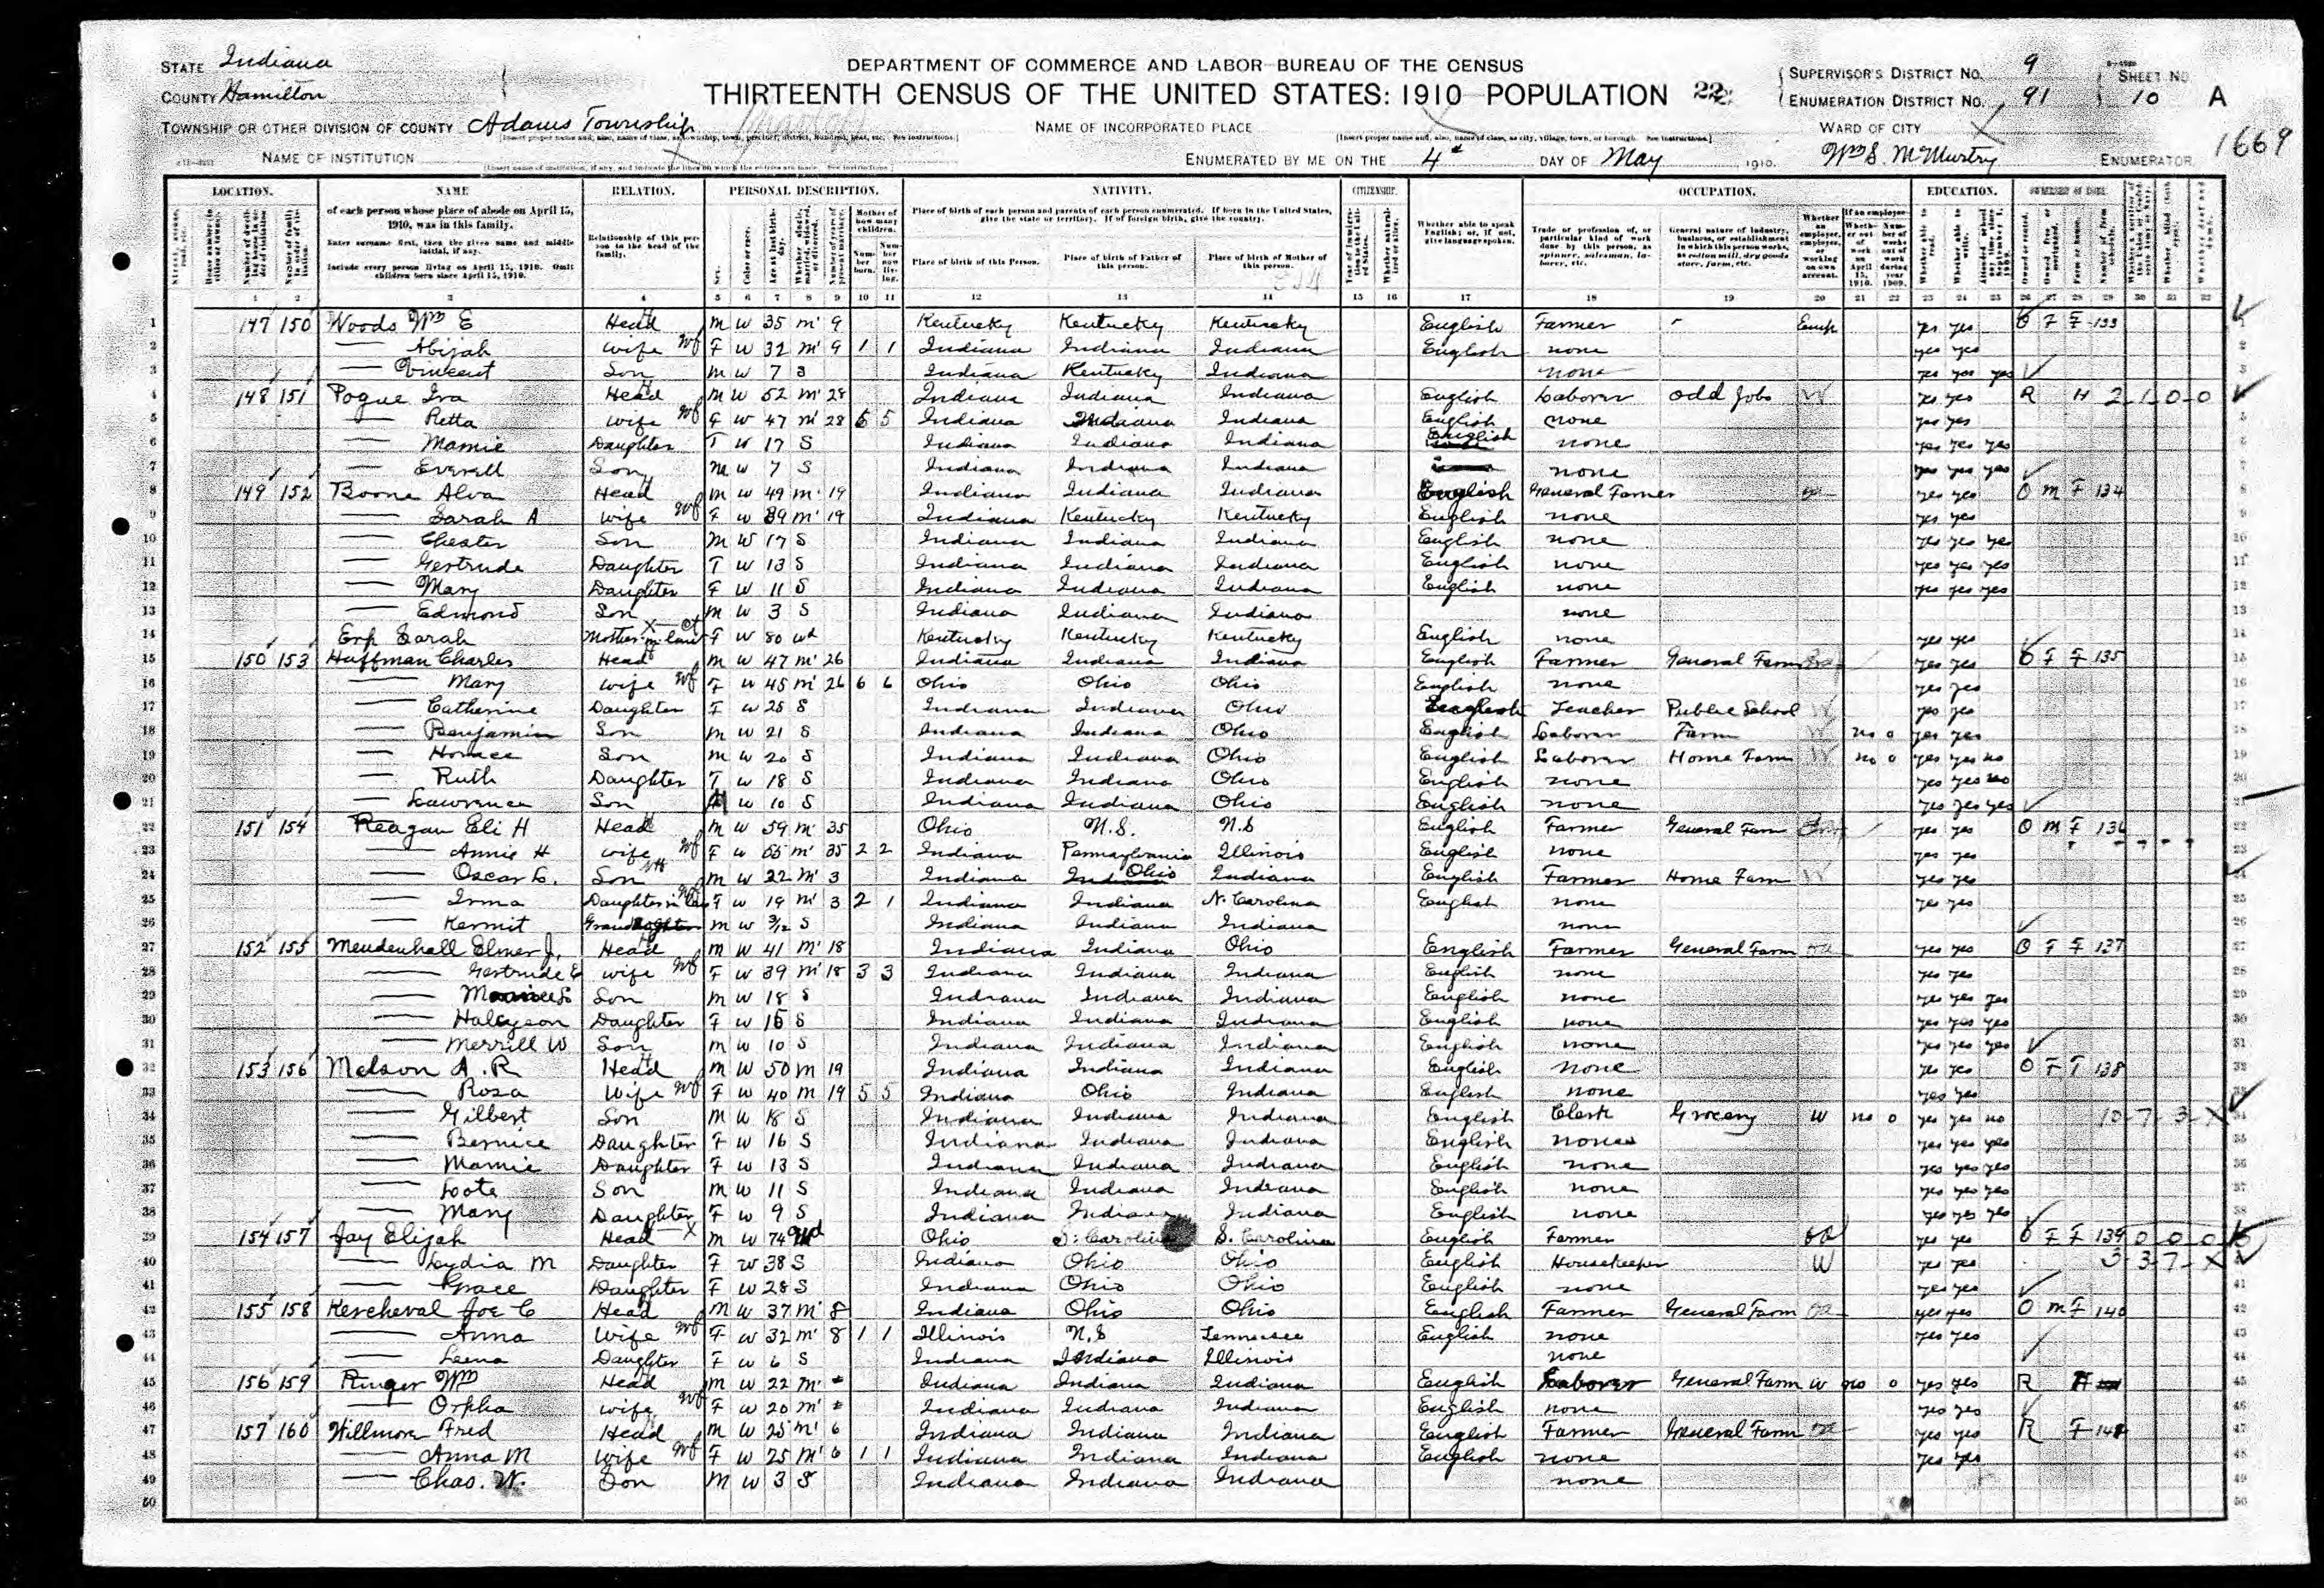 STATE Indiana
COUNTY Hamilton
TOWNSHIP OR OTHER DIVISION OF COUNTY Adams Township
NAME OF INSTITUTION
DEPARTMENT OF COMMERCE AND LABOR—BUREAU OF THE CENSUS
THIRTEENTH CENSUS OF THE UNITED STATES: 1910—POPULATION
NAME OF INCORPORATED PLACE
ENUMERATED BY ME ON THE 4th DAY OF May 1910.
SUPERVISOR'S DISTRICT No. 9
ENUMERATION DISTRICT No. 91
SHEET No. 10 A
WARD OF CITY X
Wm S. McMurtry ENUMERATOR
1669
LOCATION. NAME RELATION. PERSONAL DESCRIPTION. NATIVITY. CITIZENSHIP. OCCUPATION. EDUCATION. OWNERSHIP OF HOME.
of each person whose place of abode on April 15, 1910, was in this family.
Enter surname first, then the given name and middle initial, if any.
Include every person living on April 15, 1910. Omit children born since April 15, 1910.
Relationship of this person to the head of the family.
Mother of how many children.
Place of birth of each person and parents of each person enumerated. If born in the United States, give the state or territory. If of foreign birth, give the country.
Place of birth of this Person. Place of birth of Father of this person. Place of birth of Mother of this person.
Whether able to speak English; or, if not, give language spoken.
Trade or profession of, or particular kind of work done by this person, as spinner, salesman, laborer, etc.
General nature of industry, business, or establishment in which this person works, as cotton mill, dry goods store, farm, etc.
1 2 3 4 5 6 7 8 9 10 11 12 13 14 15 16 17 18 19 20 21 22 23 24 25 26 27 28 29 30 31 32
1 147 150 Woods Wm E Head M W 35 M 9 Kentucky Kentucky Kentucky English Farmer Emp yes yes O F F 133
2 — Abijah Wife F W 32 M 9 1 1 Indiana Indiana Indiana English none yes yes
3 — Vincent Son M W 7 S Indiana Kentucky Indiana none yes yes yes
4 148 151 Pogue Ira Head M W 52 M 28 Indiana Indiana Indiana English Laborer odd Jobs W yes yes R H 2-1-0-0
5 — Retta Wife F W 47 M 28 6 5 Indiana Indiana Indiana English none yes yes
6 — Mamie Daughter F W 17 S Indiana Indiana Indiana English none yes yes yes
7 — Everell Son M W 7 S Indiana Indiana Indiana none yes yes yes
8 149 152 Boone Alva Head M W 49 M 19 Indiana Indiana Indiana English General Farmer oa yes yes O M F 134
9 — Sarah A Wife F W 39 M 19 Indiana Kentucky Kentucky English none yes yes
10 — Chester Son M W 17 S Indiana Indiana Indiana English none yes yes yes
11 — Gertrude Daughter F W 13 S Indiana Indiana Indiana English none yes yes yes
12 — Mary Daughter F W 11 S Indiana Indiana Indiana English none yes yes yes
13 — Edmond Son M W 3 S Indiana Indiana Indiana none
14 Erp Sarah Mother in law F W 80 Wd Kentucky Kentucky Kentucky English none yes yes
15 150 153 Huffman Charles Head M W 47 M 26 Indiana Indiana Indiana English Farmer General Farm yes yes O F F 135
16 — Mary Wife F W 45 M 26 6 6 Ohio Ohio Ohio English none yes yes
17 — Catherine Daughter F W 25 S Indiana Indiana Ohio English Teacher Public School W yes yes
18 — Benjamin Son M W 21 S Indiana Indiana Ohio English Laborer Farm W no 0 yes yes
19 — Horace Son M W 20 S Indiana Indiana Ohio English Laborer Home Farm W no 0 yes yes no
20 — Ruth Daughter F W 18 S Indiana Indiana Ohio English none yes yes no
21 — Lawrence Son M W 10 S Indiana Indiana Ohio English none yes yes yes
22 151 154 Reagan Eli H Head M W 59 M 35 Ohio N.S. N.S English Farmer General Farm yes yes O M F 136
23 — Annie H Wife F W 55 M 35 2 2 Indiana Pennsylvania Illinois English none yes yes
24 — Oscar L. Son M W 22 M 3 Indiana Ohio Indiana English Farmer Home Farm W yes yes
25 — Irma Daughter in law F W 19 M 3 2 1 Indiana Indiana N. Carolina English none yes yes
26 — Kermit Grand M W 3/12 S Indiana Indiana Indiana none
27 152 155 Mendenhall Elmer J. Head M W 41 M 18 Indiana Indiana Ohio English Farmer General Farm oa yes yes O F F 137
28 — Gertrude E Wife F W 39 M 18 3 3 Indiana Indiana Indiana English none yes yes
29 — Son M W 18 S Indiana Indiana Indiana English none yes yes yes
30 — Halcyeon Daughter F W 15 S Indiana Indiana Indiana English none yes yes yes
31 — Merrill W Son M W 10 S Indiana Indiana Indiana English none yes yes yes
32 153 156 Melson A. R Head M W 50 M 19 Indiana Indiana Indiana English none yes yes O F F 138
33 — Rosa Wife F W 40 M 19 5 5 Indiana Ohio Indiana English none yes yes
34 — Gilbert Son M W 18 S Indiana Indiana Indiana English Clerk Grocery W no 0 yes yes no 10-7-3-X
35 — Bernice Daughter F W 16 S Indiana Indiana Indiana English none yes yes yes
36 — Mamie Daughter F W 13 S Indiana Indiana Indiana English none yes yes yes
37 — Foote Son M W 11 S Indiana Indiana Indiana English none yes yes yes
38 — Mary Daughter F W 9 S Indiana Indiana Indiana English none yes yes yes
39 154 157 Jay Elijah Head M W 74 Wd Ohio S. Carolina S. Carolina English Farmer oa yes yes O F F 139 0 0 0
40 — Lydia M Daughter F W 38 S Indiana Ohio Ohio English Housekeeper W yes yes 3-3-7-X
41 — Grace Daughter F W 28 S Indiana Ohio Ohio English none yes yes
42 155 158 Kercheval Joe C Head M W 37 M 8 Indiana Ohio Ohio English Farmer General Farm oa yes yes O M F 140
43 — Anna Wife F W 32 M 8 1 1 Illinois N.S Tennessee English none yes yes
44 — Leena Daughter F W 6 S Indiana Indiana Illinois none
45 156 159 Ringer Wm Head M W 22 M Indiana Indiana Indiana English Laborer General Farm W no 0 yes yes R H
46 — Orpha Wife F W 20 M Indiana Indiana Indiana English none yes yes
47 157 160 Willmore Fred Head M W 25 M 6 Indiana Indiana Indiana English Farmer General Farm oa yes yes R F
48 — Anna M Wife F W 25 M 6 1 1 Indiana Indiana Indiana English none yes yes
49 — Chas. W. Son M W 3 S Indiana Indiana Indiana none
50